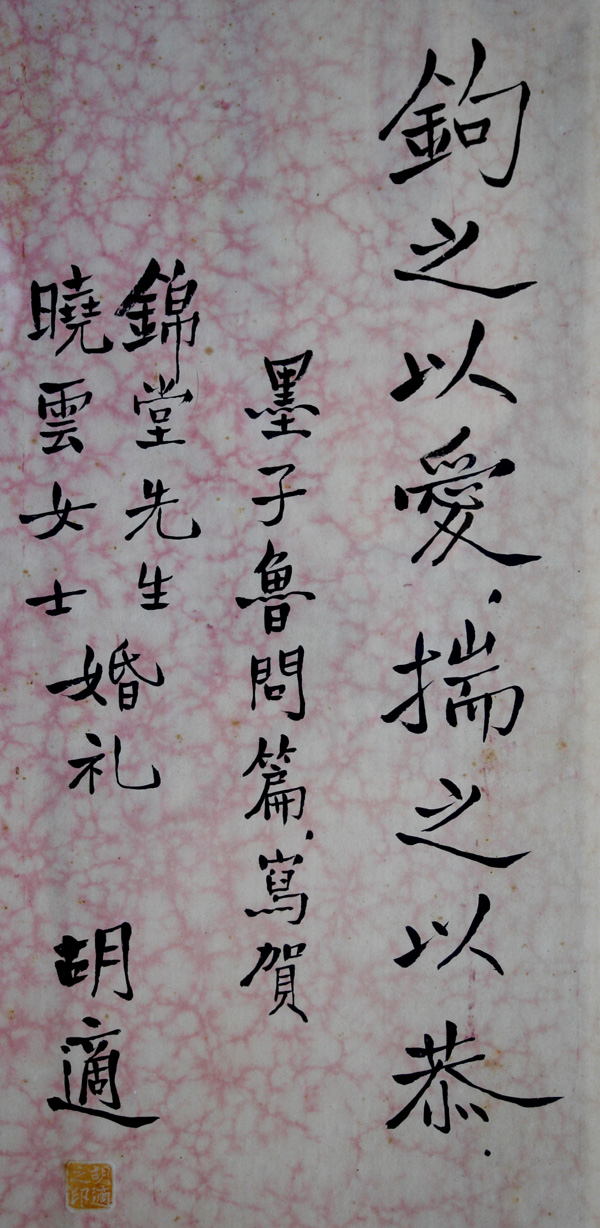 鉤之以愛，揣之以恭．
墨子魯問篇，寫賀
錦堂先生
曉雲女士
婚礼
胡適
胡適之印